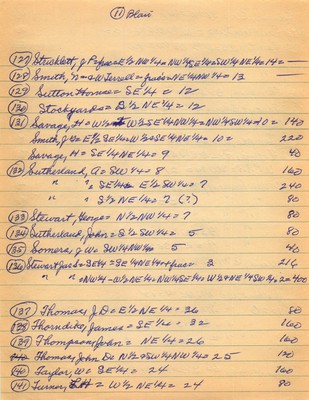 (11) Blair
(127) Stucklett, J E1/2 NW1/4 = NW1/4 SE1/4 = SW1/4 NE1/4 = 14 = —
(128) Smith, = NE1/4 NW1/4 = 13 —
(129) Sutton Homes = SE1/4 = 12
(130) Stockyards = S1/2 NE1/4 = 12
(131) Savage, H = W1/2 SE1/4 NW1/4 = NW1/4 SW1/4 = 10 = 140
Smith, J E1/2 SE1/4 = W1/2 SE1/4 NE1/4 = 10 = 220
Savage, H = SE1/4 NE1/4 = 9 40
(132) Sutherland, A = SW1/4 = 8 160
" " SE1/4 E1/2 SW1/4 = 7 240
" " S1/2 NE1/4 = 7 (?) 80
(133) Stewart, George = N1/2 NW1/4 = 7 80
(134) Sutherland, John = S1/2 SW1/4 = 5 80
(135) Somers, J W = SW1/4 NW1/4 5 40
(136) Stewart Jas S = SE1/4 NE1/4 + frac = 3 216
" " = NW1/4 - W1/2 NE1/4 = NW1/4 SE1/4 = W1/2 NE1/4 SW1/4 = 2 = 400
(137) Thomas, J D = E1/2 NE1/4 = 36 80
(138) Thorndike, James = SE1/4 = 32 160
(139) Thompson, John = NE1/4 = 26 160
140 Thomas, John D = N1/2 = SW1/4 NW1/4 = 25 120
(140) Taylor, W = SE1/4 = 24 160
(141) Turner, W1/2 NE1/4 = 24 80